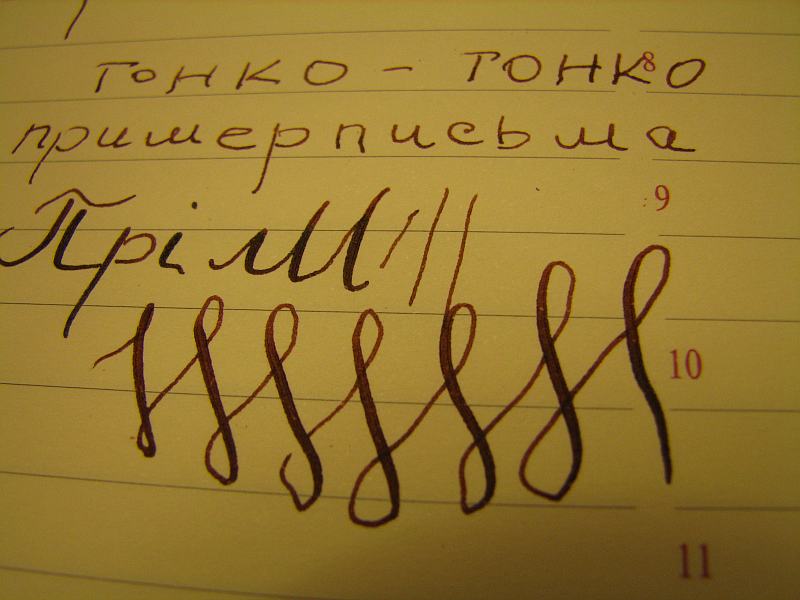 тонко - тонко
8
пример письма
9
Прім
10
11